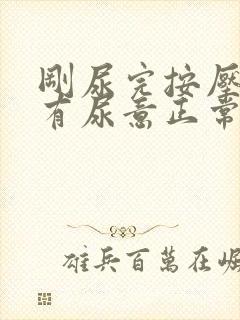 剛尿完按壓
有尿意正常
雄兵百萬在崛